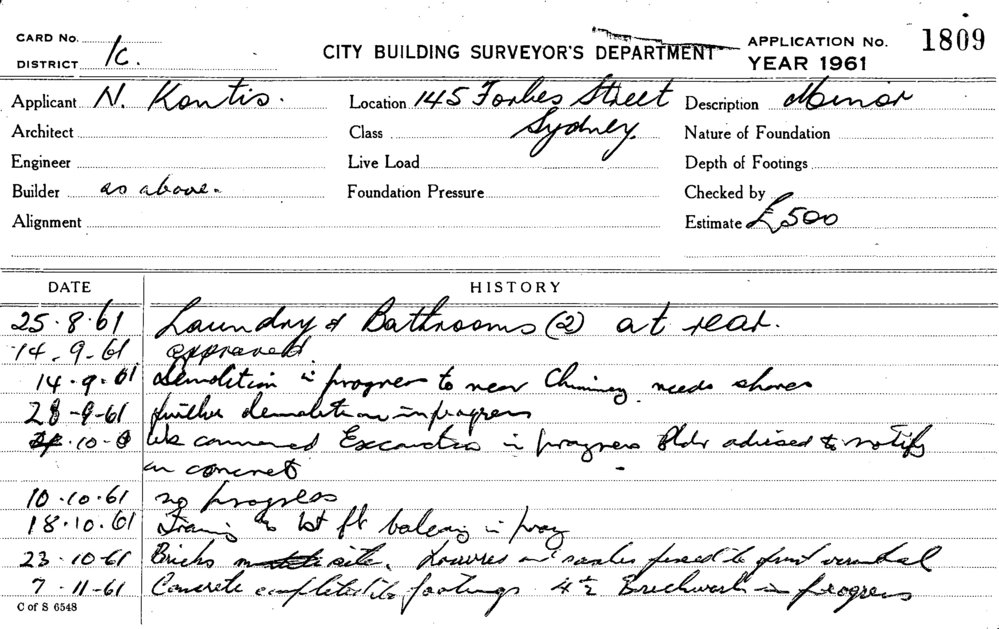 CARD No.
DISTRICT 1C.
CITY BUILDING SURVEYOR'S DEPARTMENT
APPLICATION No. 1809
YEAR 1961
Applicant N. Kontis. Location 145 Forbes Street Description Minor
Architect Class Sydney. Nature of Foundation
Engineer Live Load Depth of Footings
Builder as above. Foundation Pressure Checked by
Alignment Estimate £500
DATE HISTORY
25.8.61 Laundry & Bathrooms (2) at rear.
14-9-61 approved.
14.9.61 Demolition in progress to rear Chimney needs shores
28-9-61 further demolition in progress
10 Wk commenced Excavation in progress Bldr advised to notify
on concrete
10.10.61 no progress
18.10.61 1st fl balcony in prog
23.10.61 Bricks site. Louvres and fixed to front verandah
7.11-61 Concrete completed to footings 4½ Brickwork in progress
C of S 6548